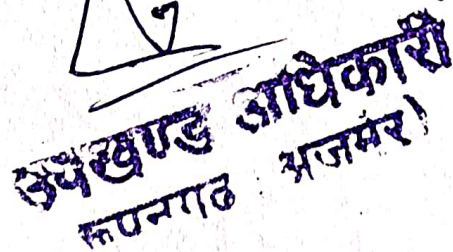 उपखण्ड अधिकारी
रूपनगढ (अजमेर)